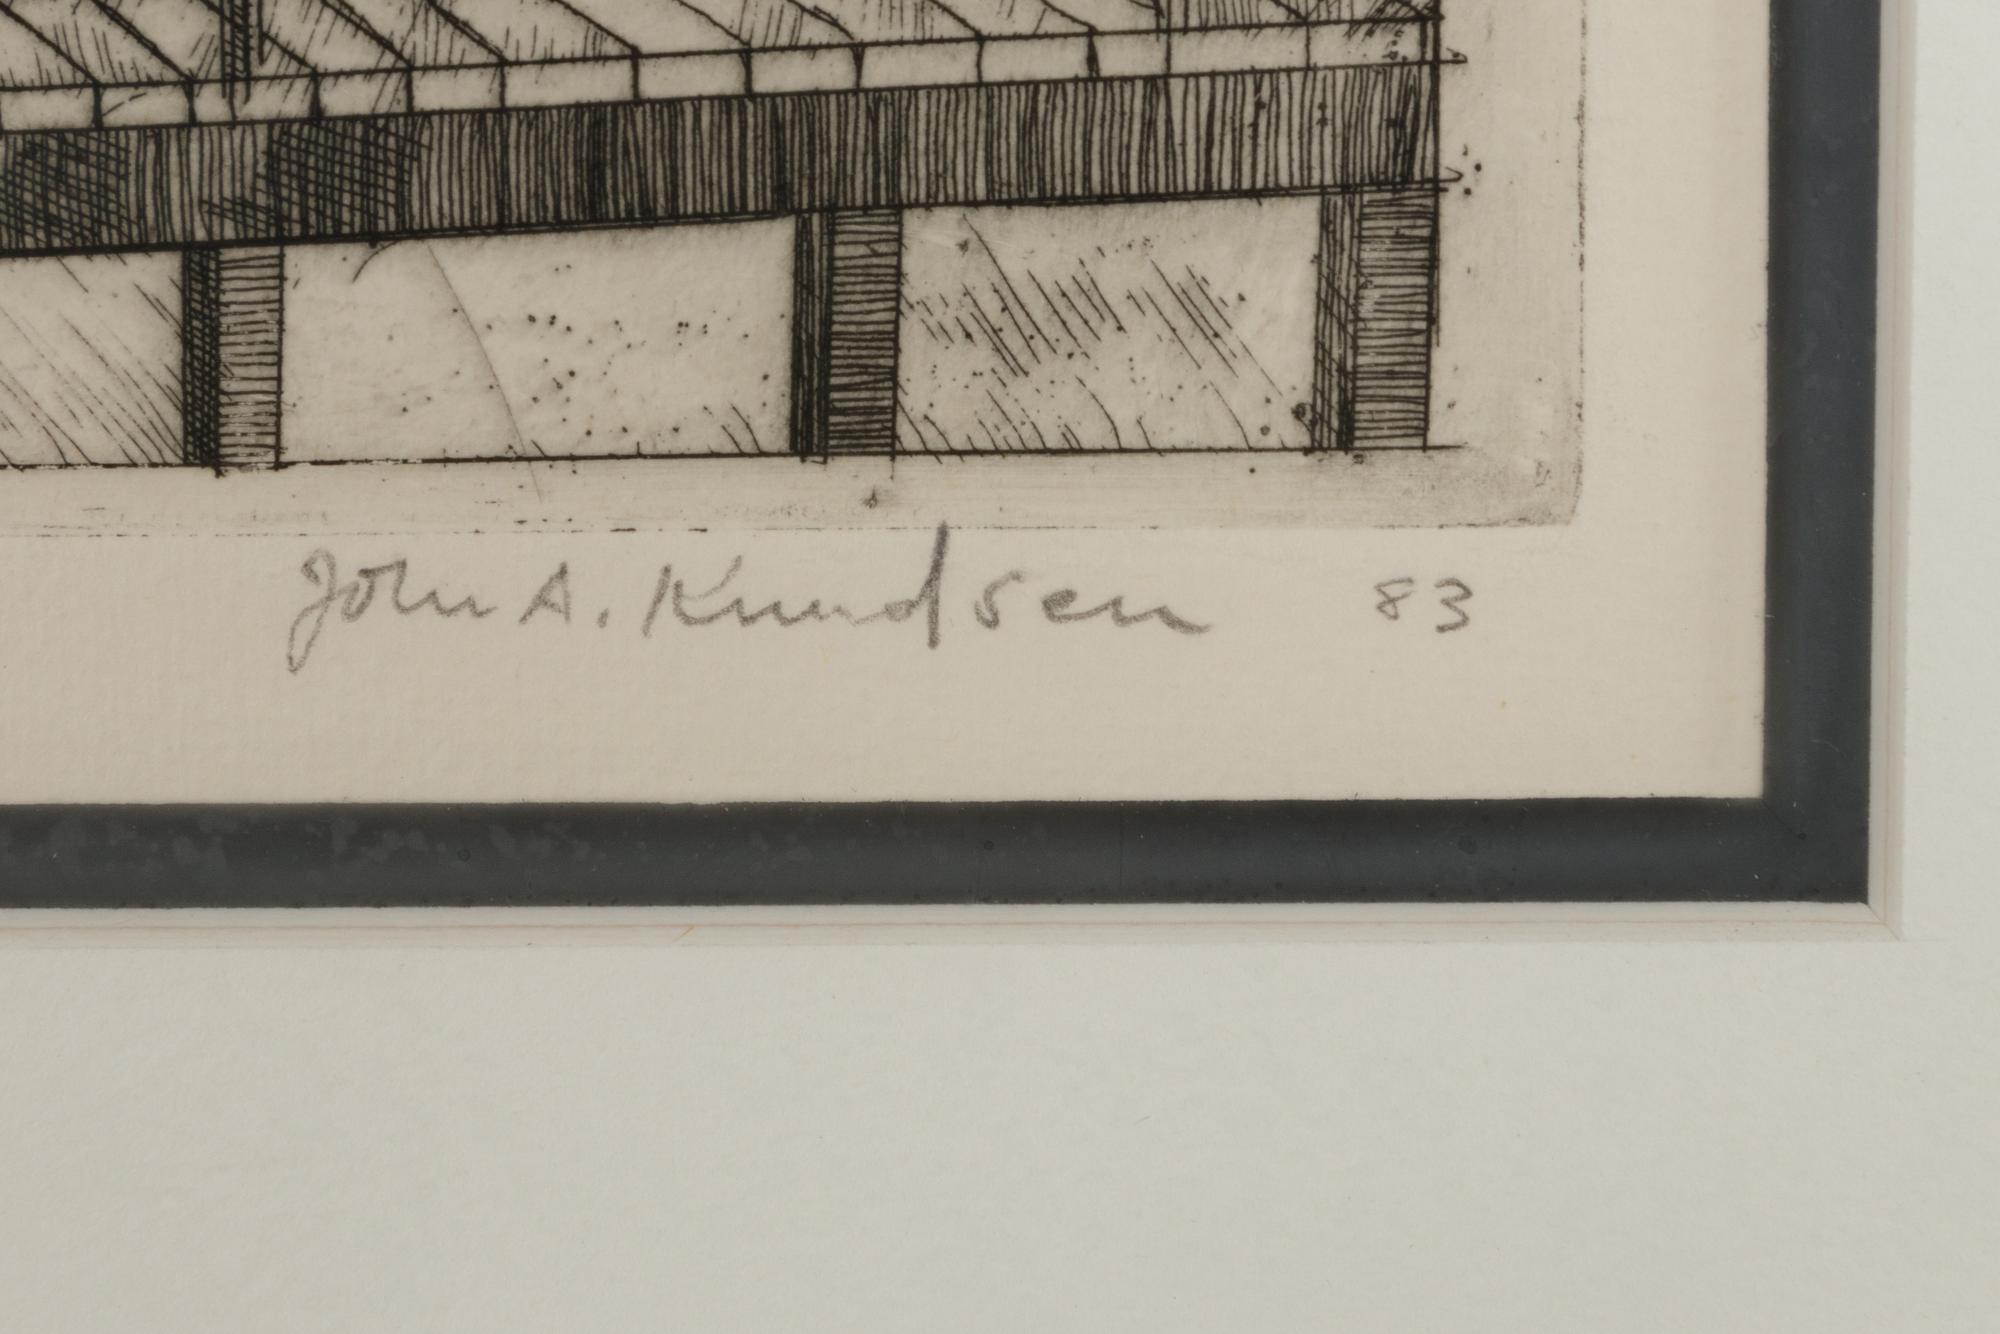 John A. Knudsen 83